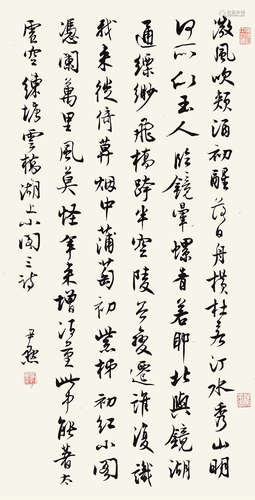 微風吹頰酒初醒落日舟橫杜若汀水秀山明
何所似玉人臨鏡暈螺青若耶北與鏡湖
通縹緲飛橋跨半空陵谷變遷誰復識
我來徙倚暮烟中蒲萄初紫柿初紅小閣
憑闌萬里風莫怪年來增酒量此中能著太
虛空 練塘雲橋湖上小閣三詩
尹默